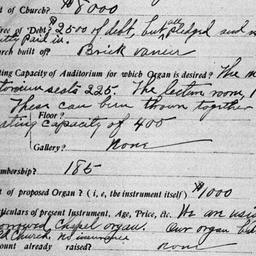 t of Church? $8000
ree of Debt? $2500 of debt, but all pledged and
Paid in.
urch built of? Brick vaneer
ting Capacity of Auditorium for which Organ is desired? The
seats 225. The lection room, 1
These can be thrown together
Floor?
ating capacity of 400
Gallery? None
embership? 185
t of proposed Organ? ( i, e, the instrument itself) $1000
rticulars of present Instrument, Age, Price, &c. We are usi
borrowed Chapel organ. Our organ bu
Church. no insurance
ount already raised? none